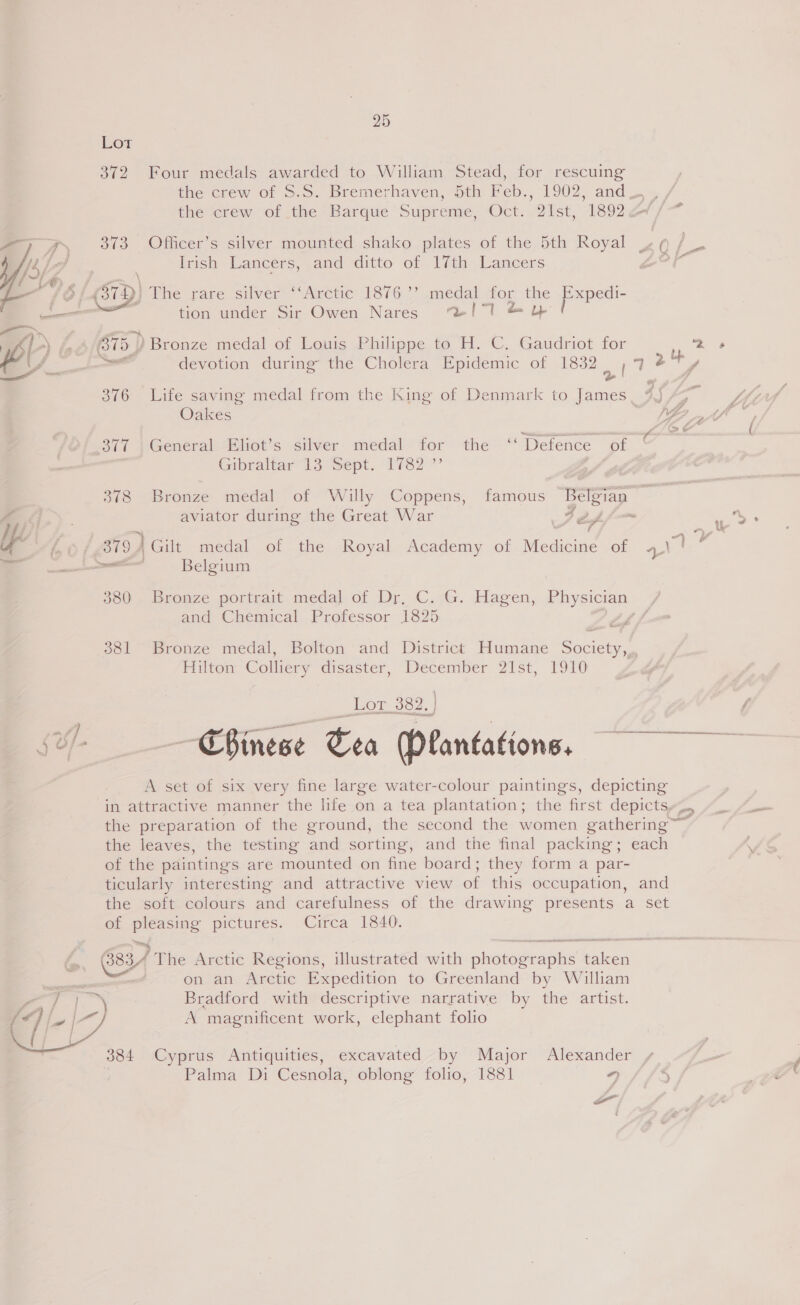 25
Lot
372 Four medals awarded to William Stead, for rescuing
the crew of S.S. Bremerhaven, 5th Feb., 1902, and
the crew of the Barque Supreme, Oct. 21st, 1892
373 Officer's silver mounted shako plates of the 5th Royal
Irish Lancers, and ditto of 17th Lancers
374 The rare silver “Arctic 1876” medal for the Expedi-
tion under Sir Owen Nares
375 Bronze medal of Louis Philippe to H. C. Gaudriot for
devotion during the Cholera Epidemic of 1832
376 Life saving medal from the King of Denmark to James
Oakes
377 General Eliot's silver medal for the “Defence of
Gibraltar 13 Sept. 1782”
378 Bronze medal of Willy Coppens, famous Belgian
aviator during the Great War
379 Gilt medal of the Royal Academy of Medicine of
Belgium
380 Bronze portrait medal of Dr. C. G. Hagen, Physician
and Chemical Professor 1825
381 Bronze medal, Bolton and District Humane Society,
Hilton Colliery disaster, December 21st, 1910
Lot 382.
Chinese Tea Plantations.
A set of six very fine large water-colour paintings, depicting
in attractive manner the life on a tea plantation; the first depicts
the preparation of the ground, the second the women gathering
the leaves, the testing and sorting, and the final packing; each
of the paintings are mounted on fine board; they form a par-
ticularly interesting and attractive view of this occupation, and
the soft colours and carefulness of the drawing presents a set
of pleasing pictures. Circa 1840.
383 The Arctic Regions, illustrated with photographs taken
on an Arctic Expedition to Greenland by William
Bradford with descriptive narrative by the artist.
A magnificent work, elephant folio
384 Cyprus Antiquities, excavated by Major Alexander
Palma Di Cesnola, oblong folio, 1881